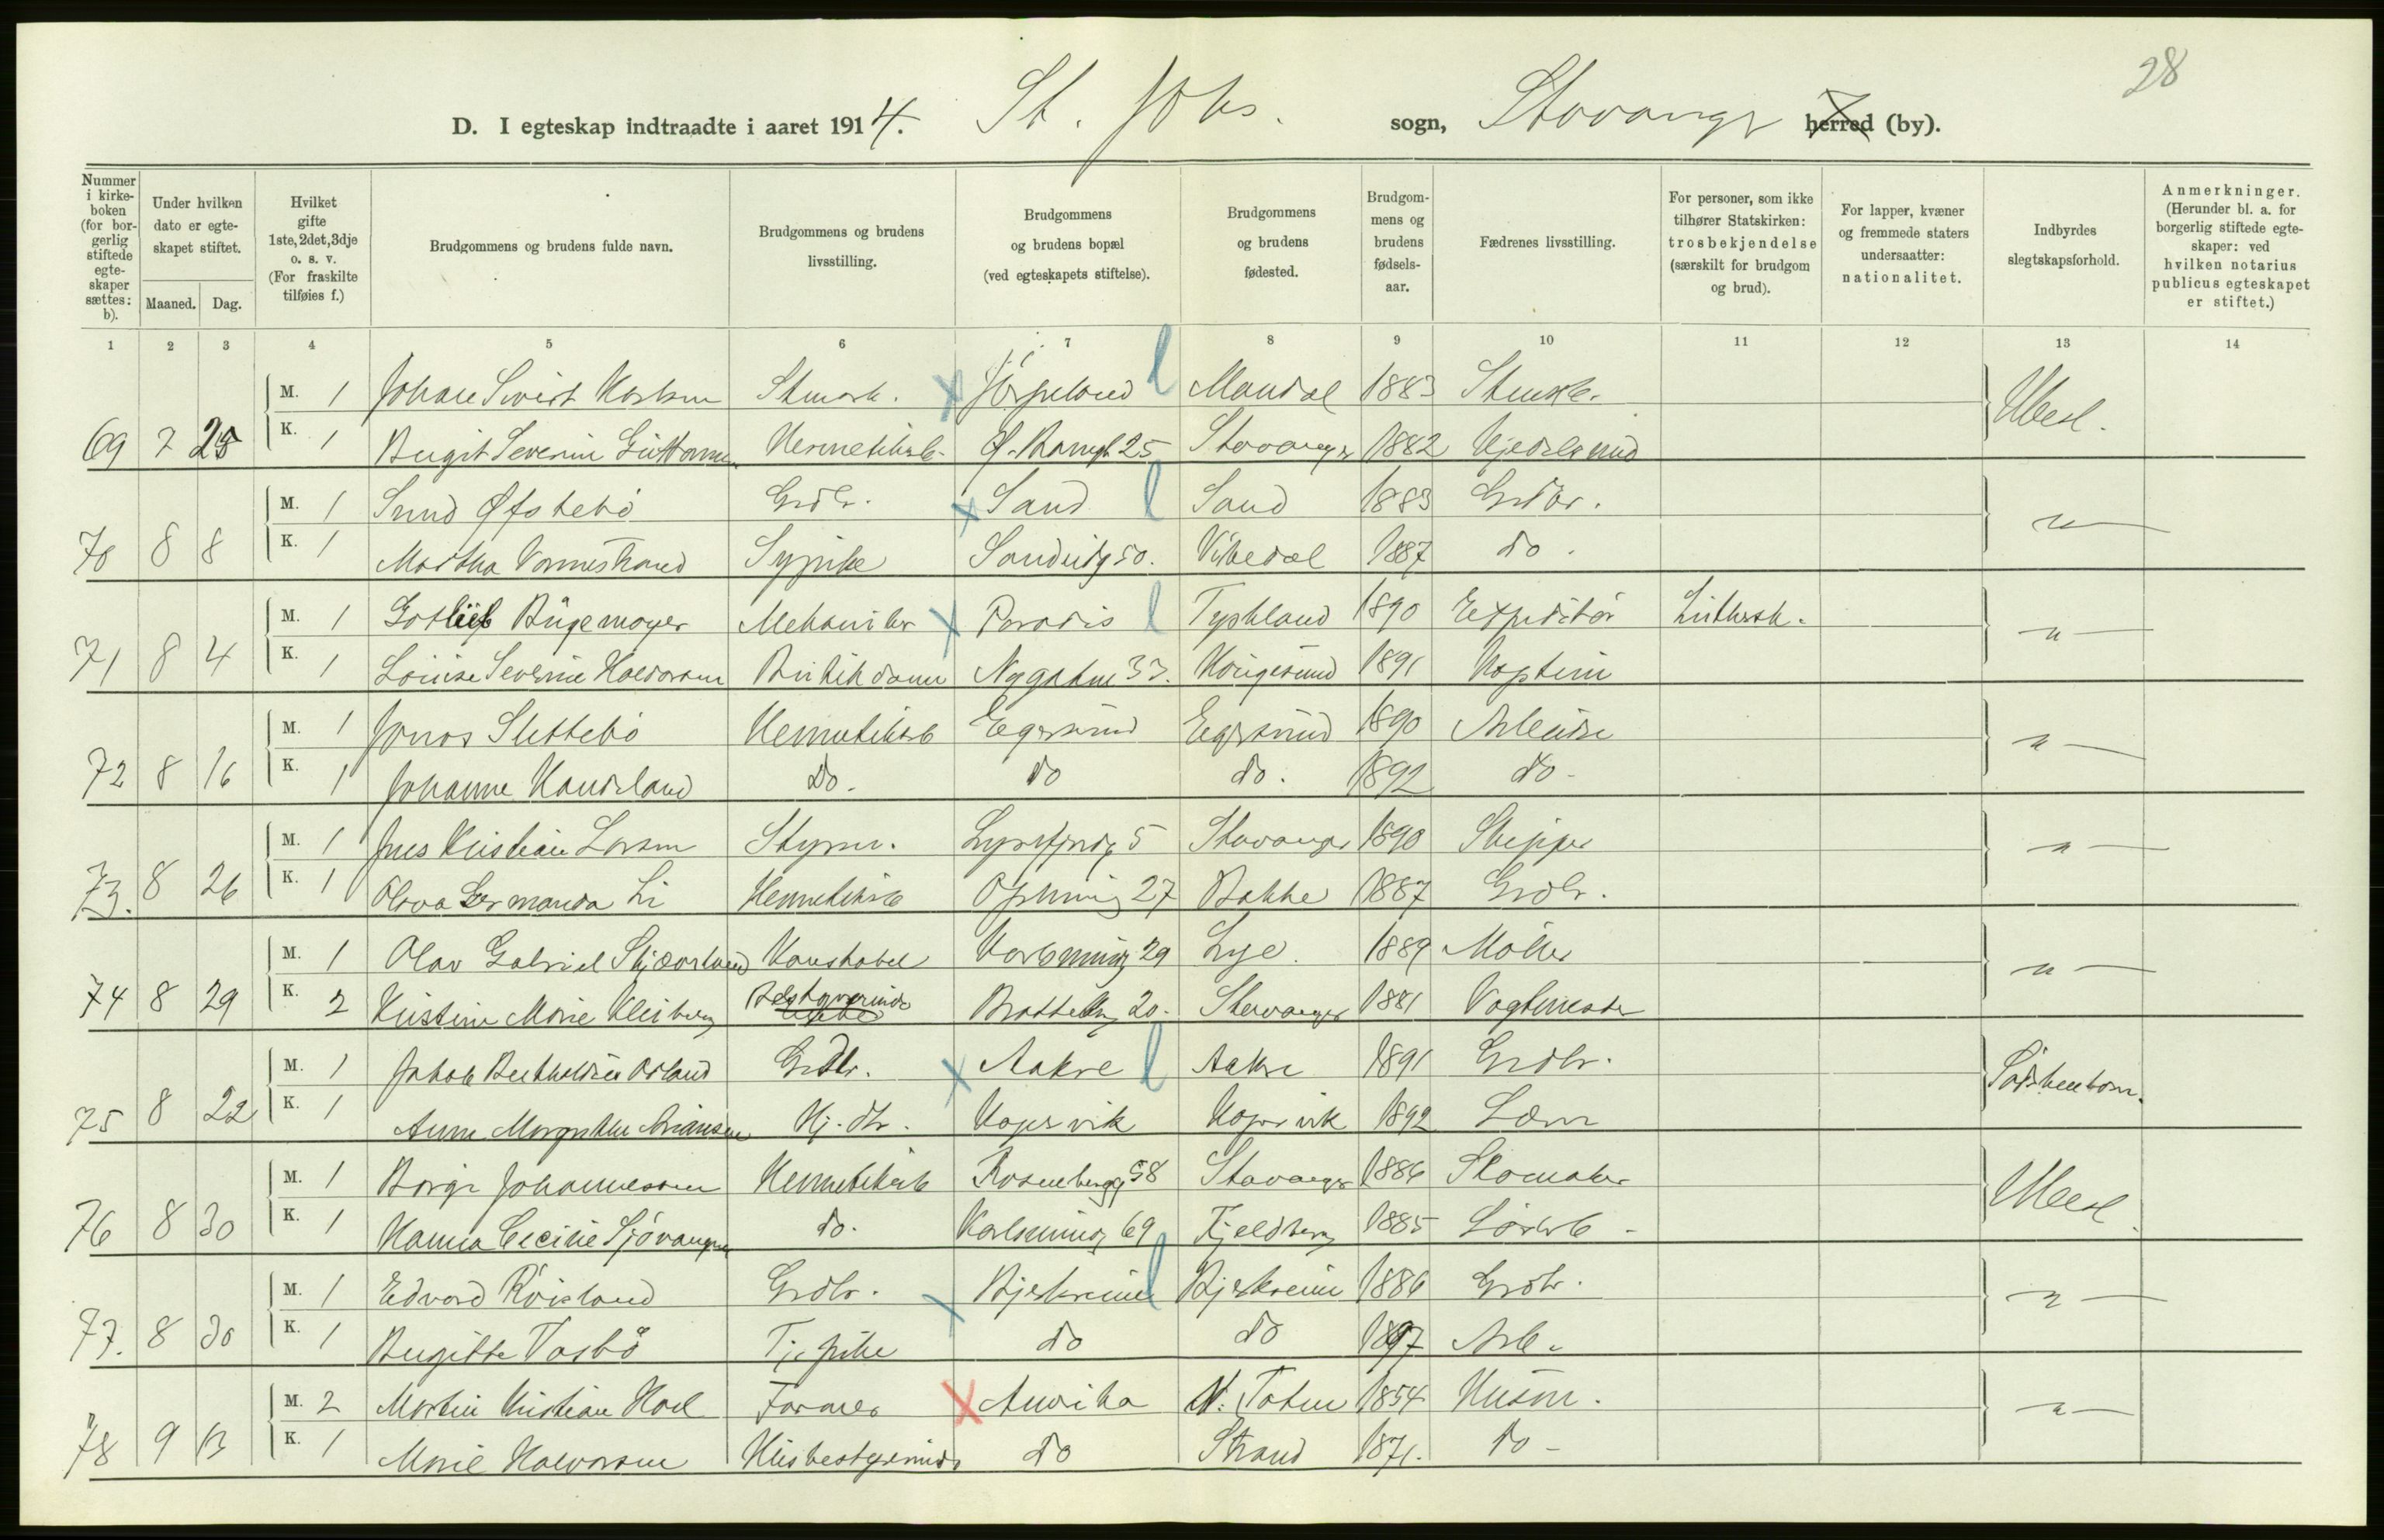 28
D. I egteskap indtraadte i aaret 1914. St. Johs. sogn, Stavanger herred (by).
Nummer i kirke-boken (for bor-gerlig stiftede egte-skaper sættes: b).
Under hvilken dato er egte-skapet stiftet.
Maaned. Dag.
Hvilket gifte 1ste, 2det, 3dje o. s. v. (For fraskilte tilføies f.)
Brudgommens og brudens fulde navn.
Brudgommens og brudens livsstilling.
Brudgommens og brudens bopæl (ved egteskapets stiftelse).
Brudgommens og brudens fødested.
Brudgom-mens og brudens fødsels-aar.
Fædrenes livsstilling.
For personer, som ikke tilhører Statskirken: trosbekjendelse (særskilt for brudgom og brud).
For lapper, kvæner og fremmede staters undersaatter: nationalitet.
Indbyrdes slegtskapsforhold.
Anmerkninger. (Herunder bl. a. for borgerlig stiftede egte-skaper: ved hvilken notarius publicus egteskapet er stiftet.)
1 2 3 4 5 6 7 8 9 10 11 12 13 14
M. 1 Johan Sivert Karlsen Stuark. x Jörpeland l Mandal 1883 Ubesl.
69 7 25 K. 1 Birgit Severine Guttormsen Hermetikarb. 25 Stavanger 1882
M. 1 Øfstebö Grdbr. x Sand l Sand 1883 Grdbr.
70 8 8 K. 1 Martha Vormestrand Sypike Sandeidg 50. Vikedal 1887 do.
M. 1 Gotlieb Bügemayer Mekaniker x Paradis l Tyskland 1890 Expeditör Luthersk.
71 8 4 K. 1 Louise Severine Halvorsen Butikdame Nygaten 33. Haugesund 1891 Kaptein
M. 1 Jonas Slettebö Hermetikarb Egersund Egersund 1890 Arbeider
72 8 16 K. 1 Johanne Haudeland do. do do. 1892 do-
M. 1 Jens Kristian Larsen Styrm. Lysefjordg 5 Stavanger 1890 Skipper
73. 8 26 K. 1 Olava Germanda Li Hermetikarb 27 Bakke 1887 Grdbr.
M. 1 Olav Gabriel Skjæveland Konstabel Karlsminneg 29 Lye. 1889 Möller
74 8 29 K. 2 Kristine Marie Kleiberg Bestyrerinde Brattebg 20. Stavanger 1881 Vagtmester
M. 1 Jakob Berthelsen Osland Grdbr. x Aakre l Aakre 1891 Grdbr. Södskenbarn.
75 8 22 K. 1 Anne Margrethe Aniansen Hj. dtr. Kopervik Kopervik 1892
M. 1 Börge Johannessen Hermetikarb Rosenbergg 58 Stavanger 1886 Skomaker Ubesl.
76 8 30 K. 1 Hanna Cecilie Sjövangsen do. Karlsminneg 69 Fjeldberg 1885 Lösarb-
M. 1 Edvard Röisland Grdbr. x Bjerkreim l Bjerkreim 1886 Grdbr.
77. 8 30 K. 1 Birgitte Vasbö Tj. pike do do 1897 Arb.
M. 2 Martin Kristian Hoel Farmer x Amerika V. Toten 1854 Husm.
78 9 13 K. 1 Marie Halvorsen Husbestyrerinde do Strand 1871. do-